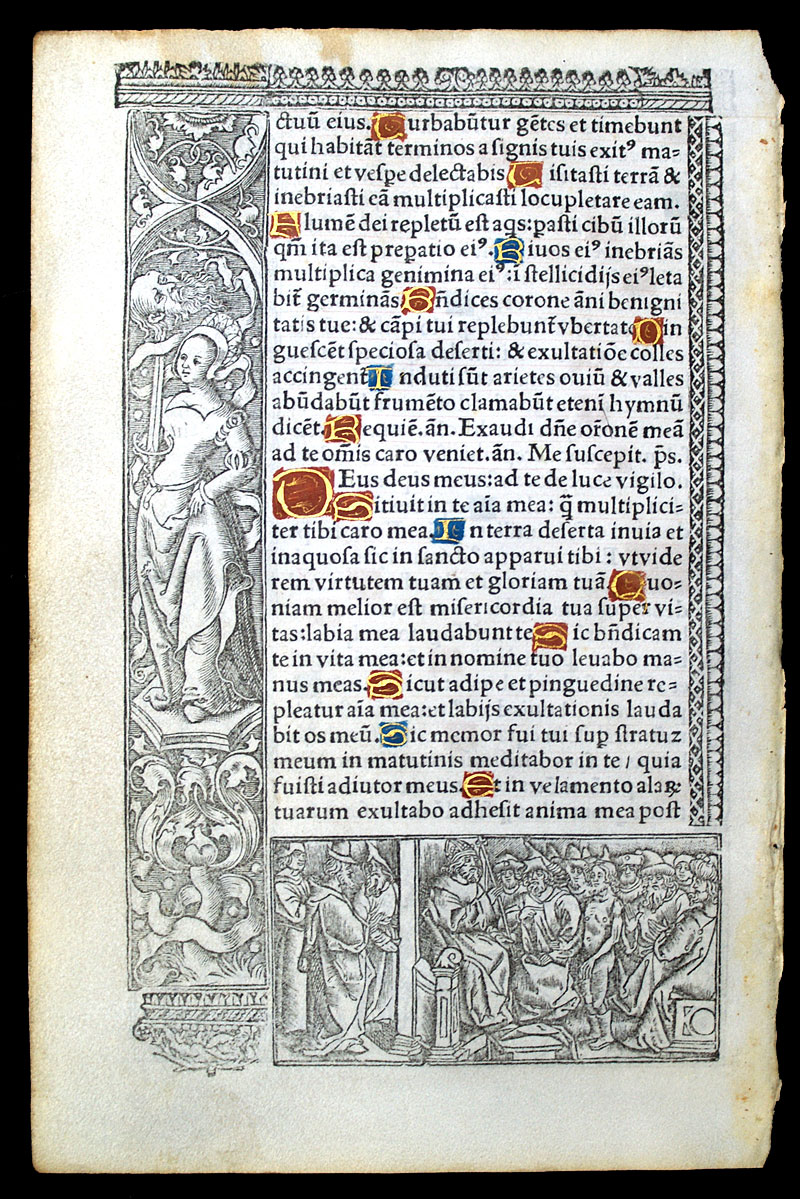 ctuū eius. Turbabūtur gētes et timebunt
qui habitāt terminos a signis tuis exitꝰ ma=
tutini et vespe delectabis Visitasti terrā &
inebriasti eā multiplicasti locupletare eam.
Flumē dei repletū est aq̄s: pasti cibū illorū
qm̄ ita est prepatio eiꝰ. Riuos eiꝰ inebriās
multiplica genimina eiꝰ: ī stellicidijs eiꝰ leta
bit̄ germinās Bn̄dices corone āni benigni
tatis tue: & cāpi tui replebunt̄ vbertate Pin
guescēt speciosa deserti: & exultatiōe colles
accingent̄ Induti sūt arietes ouiū & valles
abūdabūt frumēto clamabūt eteni hymnū
dicēt. Requiē. ān. Exaudi dn̄e or̄onē meā
ad te om̄is caro veniet. ān. Me suscepit. p̄s.
Deus deus meus: ad te de luce vigilo.
Sitiuit in te aīa mea: q̄ multiplici=
ter tibi caro mea. In terra deserta inuia et
inaquosa sic in sancto apparui tibi: vt vide
rem virtutem tuam et gloriam tuā Quo=
niam melior est misericordia tua super vi=
tas: labia mea laudabunt te Sic bn̄dicam
te in vita mea: et in nomine tuo leuabo ma=
nus meas. Sicut adipe et pinguedine re=
pleatur aīa mea: et labijs exultationis lauda
bit os meū. Sic memor fui tui suꝑ stratuz
meum in matutinis meditabor in te / quia
fuisti adiutor meus. Et in velamento alaꝝ
tuarum exultabo adhesit anima mea post